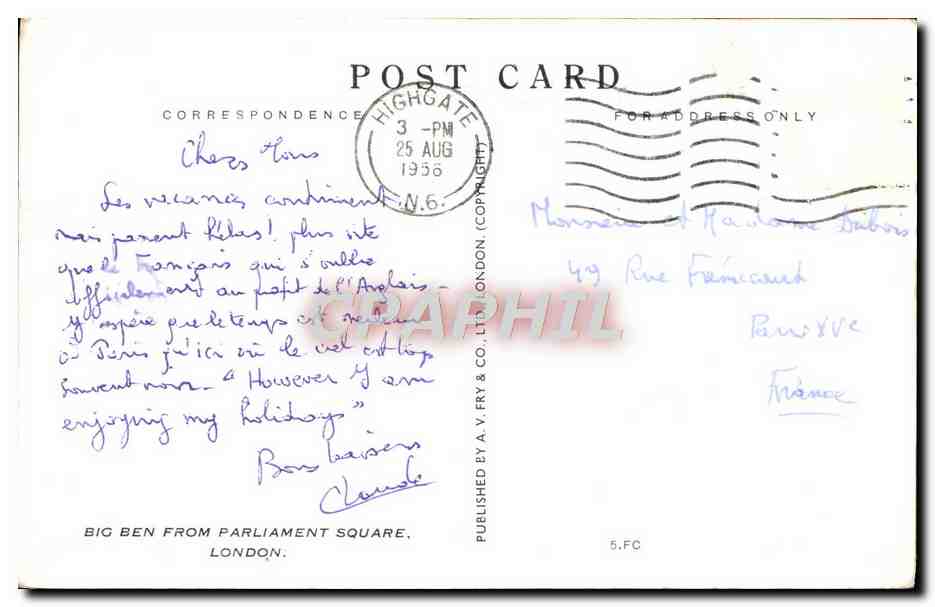 POST CARD
CORRESPONDENCE
FOR ADDRESS ONLY
HIGHGATE
3 -PM
25 AUG
1956
N.6.
Chers Tous
Les vacances continuent
mais passent hélas! plus vite
que le Français qui s'oublie
officiellement au profit de l'Anglais -
J'espère que le temps est meilleur
à Paris qu'ici où le ciel est trop
souvent noir - "However I am
enjoying my holidays"
Bons baisers
Claude
BIG BEN FROM PARLIAMENT SQUARE,
LONDON.
PUBLISHED BY A. V. FRY & CO., LTD., LONDON. (COPYRIGHT)
Monsieur et Madame Dubois
49 Rue Frémicourt
Paris XVe
France
5.FC
CPAPHIL